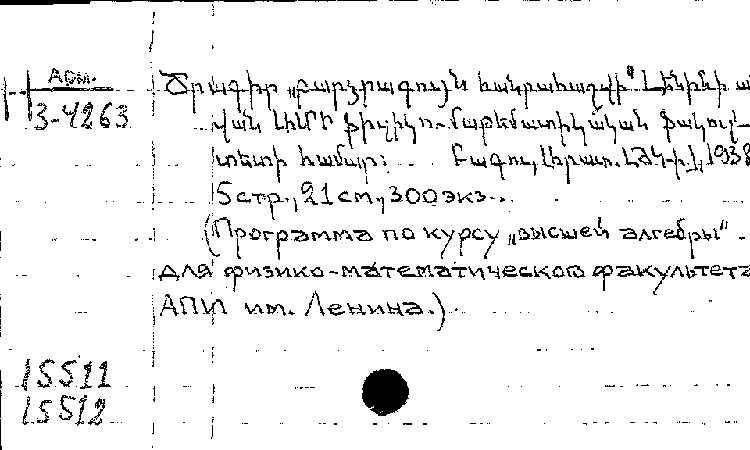 Арм.
3-4263
Ծրագիր „բարձրագույն հանրահաշվի" Լենինի ա
վան ԱՊԻ ֆիզիկո-մաթեմատիկական ֆակուլ-
տետի համար։ Բագու, 1938
5стр., 21см., 300экз.
(Программа по курсу „высшей алгебры"
для физико-математического факультета
АПИ им. Ленина.)
15511
15512